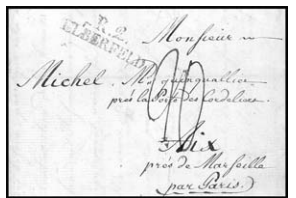 R. 2.
ELBERFELD
Monsieur
Michel. Md. quinquallier
près la Porte des Cordeliers.
Aix
près de Marseille
par Paris.